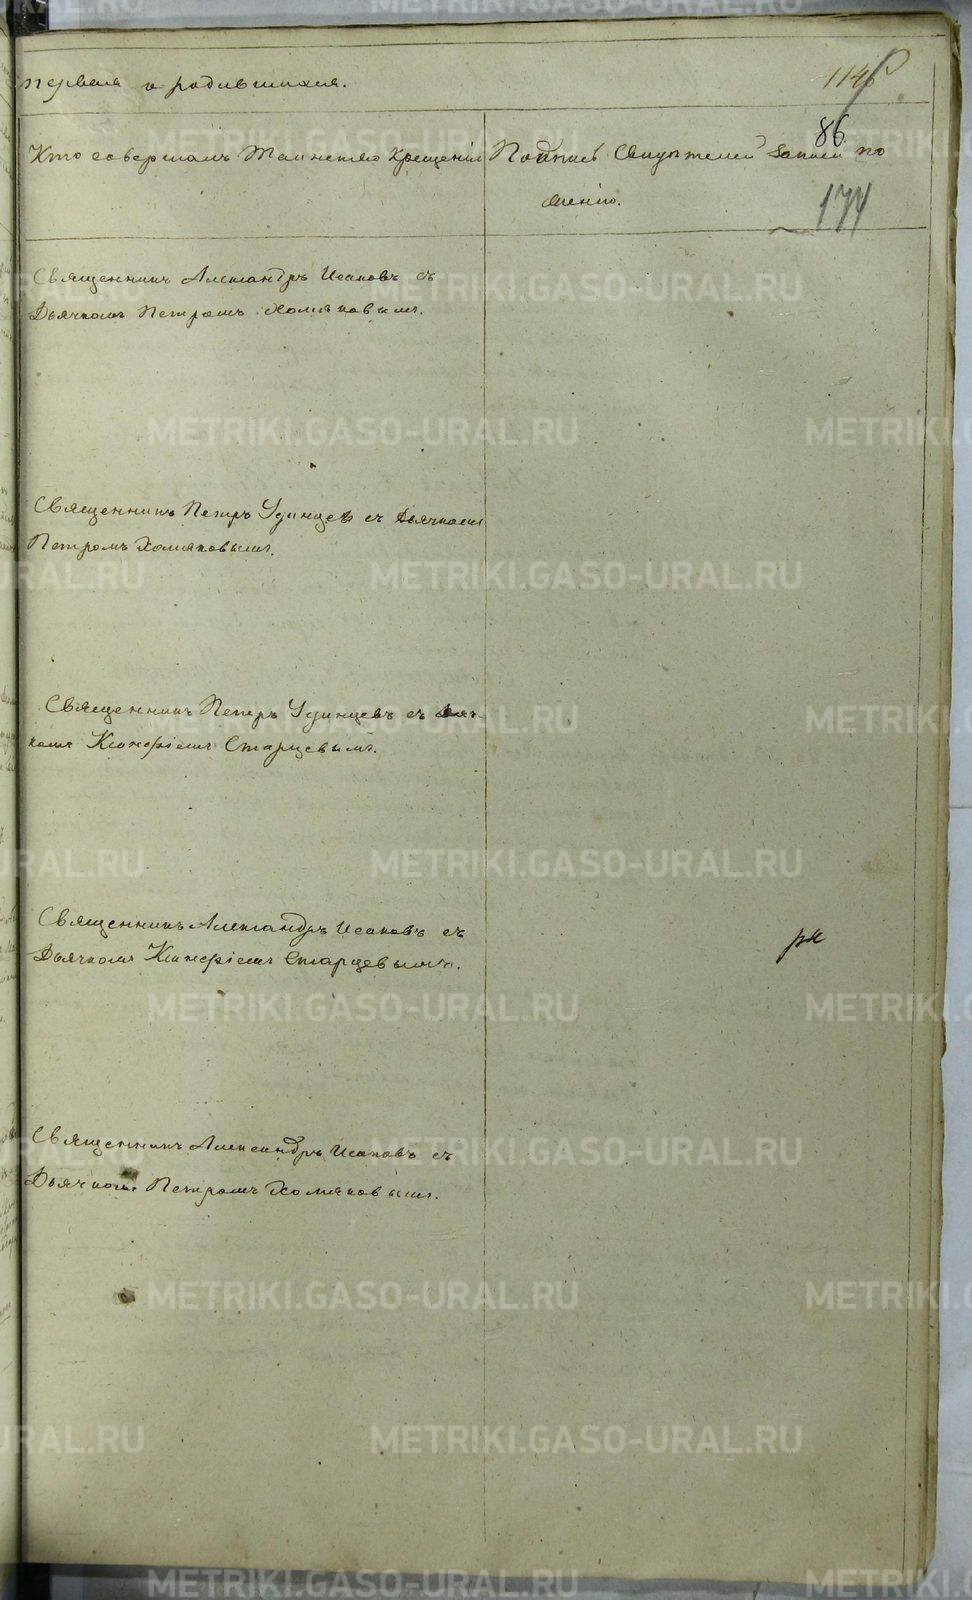 первая о родившихся.
1148
86.
Кто совершалъ Таинство Крещенія
Подпись Свидѣтелей записи по
желанію.
174
Священникъ Александръ Исаковъ съ
Дьячкомъ Петромъ Холмяковымъ.
Священникъ Петръ Удинцевъ съ Дьячкомъ
Петромъ Хомяковымъ.
Священникъ Петръ Удинцевъ съ Дьяч-
комъ Ксинофіемъ Старцевымъ.
Священникъ Александръ Исаковъ съ
Дьячкомъ Ксинофіемъ Старцевымъ.
Священникъ Александръ Исаковъ съ
Дьячкомъ Петромъ Хомяковымъ.
METRIKI.GASO-URAL.RU